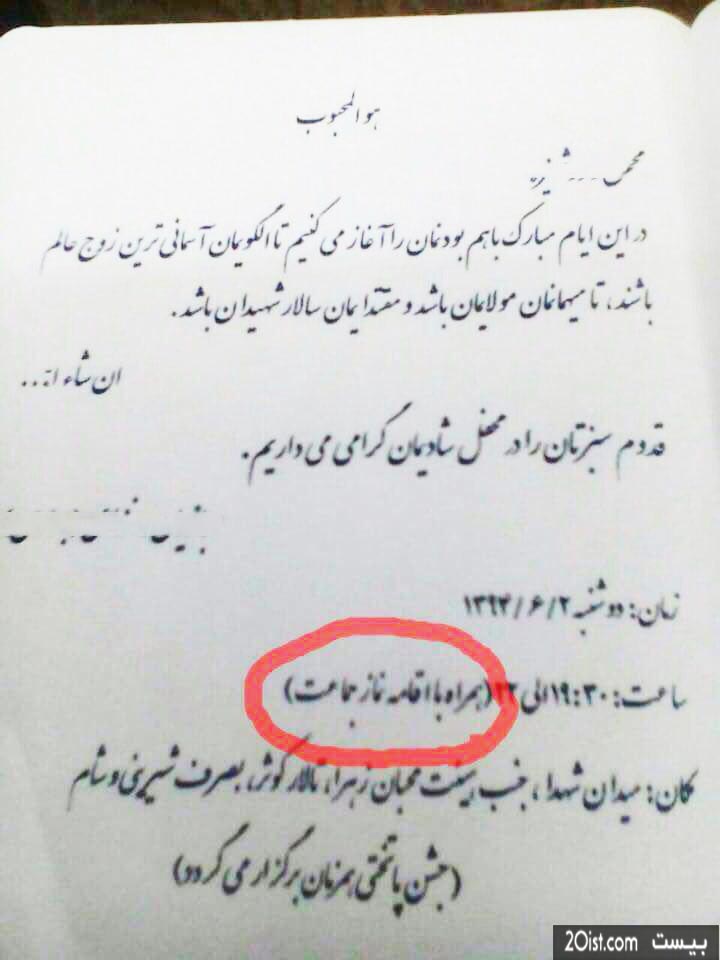 هو المحبوب
در این ایام مبارک باهم بودنمان را آغاز می کنیم تا الگویمان آسمانی ترین زوج عالم
باشند، تا میهمانمان مولایمان باشد و مقتدایمان سالار شهیدان باشد.
ان شاء ا...
قدوم سبزتان را در محفل شادیمان گرامی می داریم.
زمان: دوشنبه ۱۳۹۴/۶/۲
ساعت: ۱۹:۳۰ الی ۲۲ (همراه با اقامه نماز جماعت)
مکان: میدان شهدا، جنب پمپ بنزین محبان زهرا، تالار کوثر، بصرف شیرینی و شام
(جشن پاتختی همزمان برگزار می گردد)
بیست 20ist.com